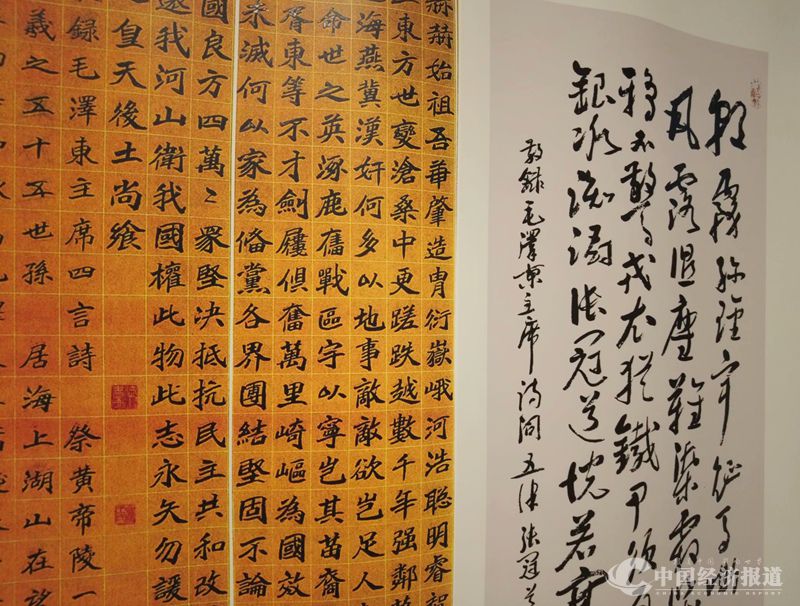 朝霧弥瓊宇征馬
風露湿塵難染霜
鴉不驚戎衣猶鐵甲須
銀冰踟躕张冠道恍若塞
敬錄毛澤東主席诗词五律张冠道
赫赫始祖吾華肇造胄衍嶽峨河浩聰明睿智
東方世變滄桑中更蹉跌越數千年强鄰蔑
海燕冀漢奸何多以地事敵敵欲豈足人
命世之英涿鹿奮戰區宇以寧豈其苗裔
胥東等不才劍屨俱奮萬里崎嶇為國效
未滅何以家為偹黨各界團結堅固不論
國良方四萬〻衆堅決抵抗民主共和改
還我河山衛我國權此物此志永矢勿諼
皇天後土尚飨
錄毛澤東主席四言詩 祭黄帝陵一
羲之五十五世孫 居海上湖山在
中国经济报道
CHINA ECONOMIC REPORT